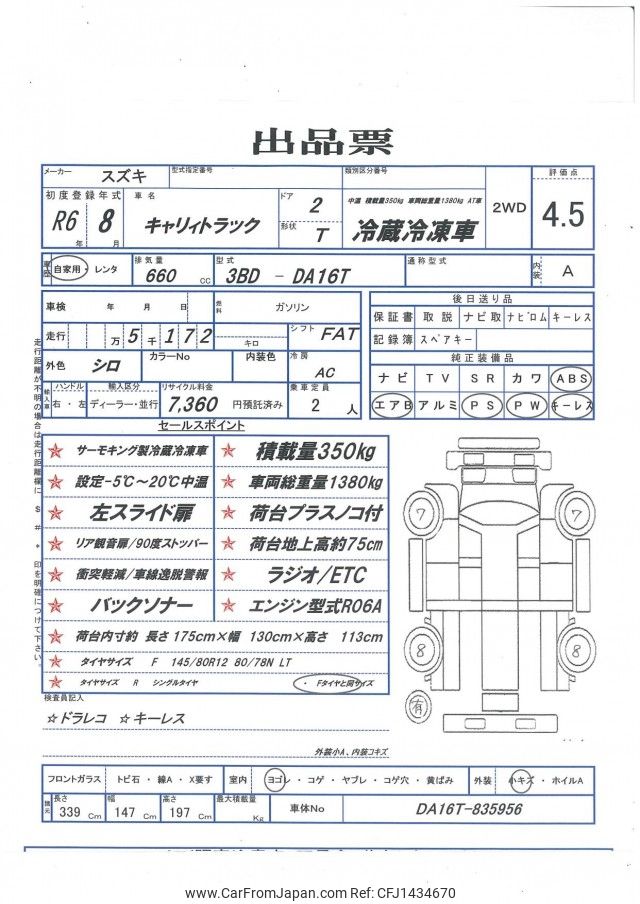 出品票
メーカー スズキ 型式指定番号 類別区分番号 評価点
初度登録年式 車名 ドア 2 中温 積載量350kg 車両総重量1380kg AT車 2WD 4.5
R6年 8月 キャリィトラック 形状 T 冷蔵冷凍車
車歴 自家用・レンタ 排気量 660 cc 型式 3BD - DA16T 通称型式 内装 A
車検 年 月 日 燃料 ガソリン 後日送り品
保証書 取説 ナビ取 ナビロム キーレス
走行 万 5 千 1 7 2 キロ シフト FAT 記録簿 スペアキー
外色 シロ カラーNo 内装色 冷房 AC 純正装備品
ナビ TV SR カワ ABS
輸入車 ハンドル 右・左 輸入区分 ディーラー・並行 リサイクル料金 7,360 円預託済み 乗車定員 2 人 エアB アルミ PS PW キーレス
セールスポイント
サーモキング製冷蔵冷凍車 積載量350kg
設定-5℃~20℃中温 車両総重量1380kg
左スライド扉 荷台プラスノコ付
リア観音扉/90度ストッパー 荷台地上高約75cm
衝突軽減/車線逸脱警報 ラジオ/ETC
バックソナー エンジン型式R06A
荷台内寸約 長さ175cm×幅 130cm×高さ 113cm
タイヤサイズ F 145/80R12 80/78N LT
タイヤサイズ R シングルタイヤ ・Fタイヤと同サイズ
走行距離が不明の場合は走行距離欄に $ # * 印を明確につけて下さい。
7 7
8 8
有
検査員記入
☆ドラレコ ☆キーレス
外装小A、内装コキズ
フロントガラス トビ石・線A・X要す 室内 ヨゴレ・コゲ・ヤブレ・コゲ穴・黄ばみ 外装 小キズ・ホイルA
諸元 長さ 339 Cm 幅 147 Cm 高さ 197 Cm 最大積載量 Kg 車体No DA16T-835956
www.CarFromJapan.com Ref: CFJ1434670